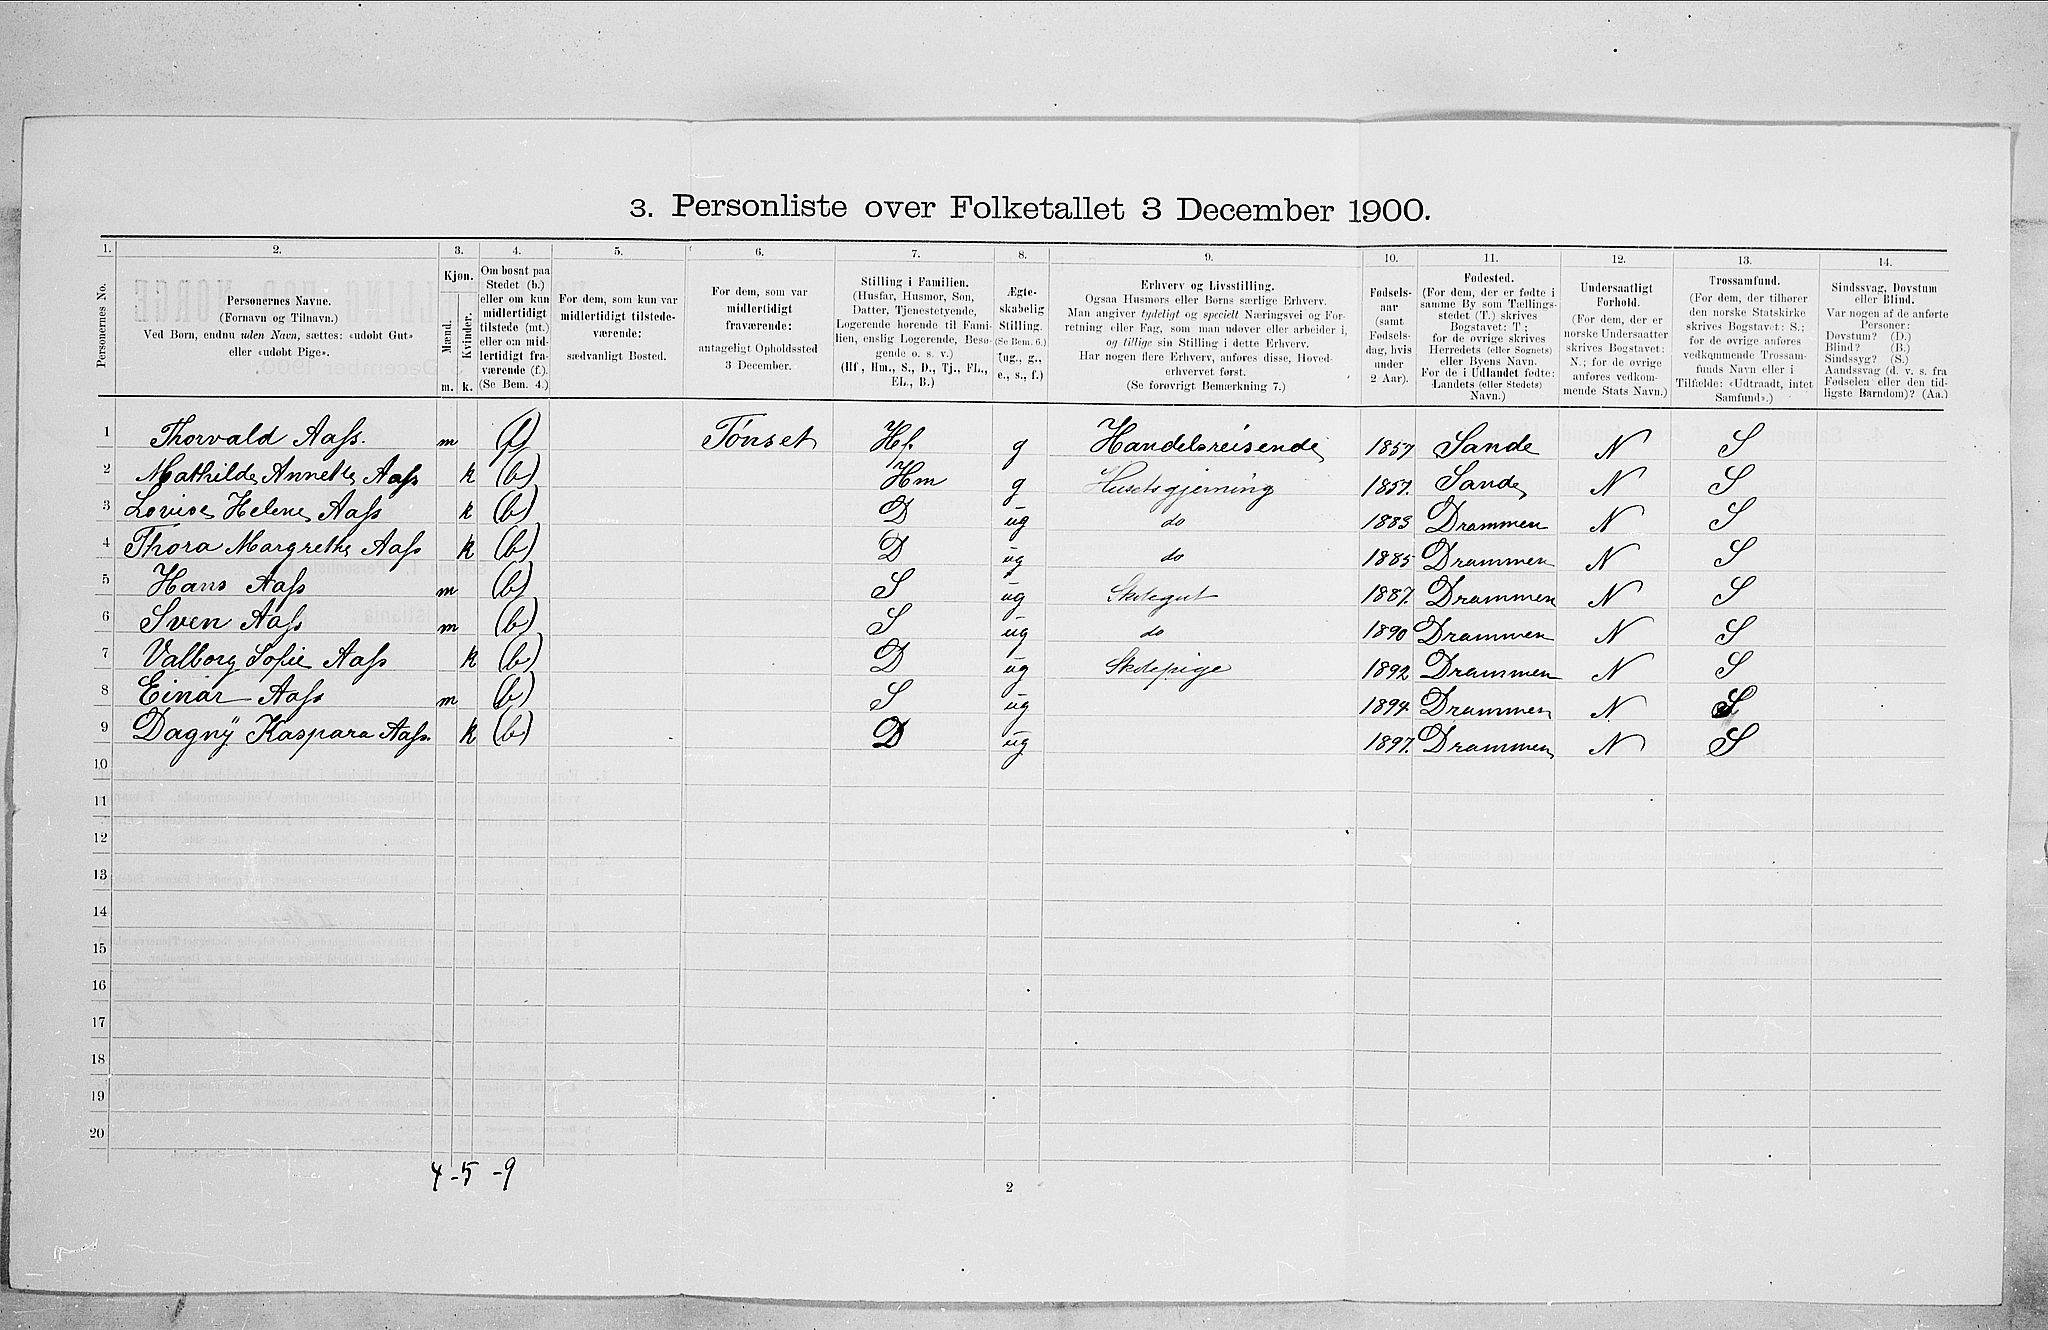 3. Personliste over Folketallet 3 December 1900.
1. 2. 3. 4. 5. 6. 7. 8. 9. 10. 11. 12. 13. 14.
Personernes No.
Personernes Navne.
(Fornavn og Tilnavn.)
Ved Børn, endnu uden Navn, sættes: «udøbt Gut»
eller «udøbt Pige».
Kjøn.
Mænd.
Kvinder.
m. k.
Om bosat paa
Stedet (b.)
eller om kun
midlertidigt
tilstede (mt.)
eller om mid-
lertidigt fra-
værende (f.).
(Se Bem. 4.)
For dem, som kun var
midlertidigt tilstede-
værende:
sædvanligt Bosted.
For dem, som var
midlertidigt
fraværende:
antageligt Opholdssted
3 December.
Stilling i Familien.
(Husfar, Husmor, Søn,
Datter, Tjenestetyende,
Logerende hørende til Fami-
lien, enslig Logerende, Besø-
gende o. s. v.)
(Hf, Hm., S., D., Tj., FL.,
EL., B.)
Ægte-
skabelig
Stilling.
(Se Bem. 6.)
(ug., g.,
e., s., f.)
Erhverv og Livsstilling.
Ogsaa Husmors eller Børns særlige Erhverv.
Man angiver tydeligt og specielt Næringsvei og For-
retning eller Fag, som man udøver eller arbeider i,
og tillige sin Stilling i dette Erhverv.
Har nogen flere Erhverv, anføres disse, Hoved-
erhvervet først.
(Se forøvrigt Bemærkning 7.)
Fødsels-
aar
(samt
Fødsels-
dag, hvis
under
2 Aar).
Fødested.
(For dem, der er fødte i
samme By som Tællings-
stedet (T.) skrives
Bogstavet: T;
for de øvrige skrives
Herredets (eller Sognets)
eller Byens Navn.
For de i Udlandet fødte:
Landets (eller Stedets)
Navn.)
Undersaatligt
Forhold.
(For dem, der er
norske Undersaatter
skrives Bogstavet:
N.; for de øvrige
anføres vedkom-
mende Stats Navn.)
Trossamfund.
(For dem, der tilhører
den norske Statskirke
skrives Bogstavet: S.;
for de øvrige anføres
vedkommende Trossam-
funds Navn eller i
Tilfælde: «Udtraadt, intet
Samfund».)
Sindssvag, Døvstum
eller Blind.
Var nogen af de anførte
Personer:
Døvstum? (D.)
Blind? (B.)
Sindssyg? (S.)
Aandssvag (d. v. s. fra
Fødselen eller den tid-
ligste Barndom)? (Aa.)
1 Thorvald Aass. m (f) Tönset Hf. g Handelsreisende 1857 Sande N S
2 Mathilde Annette Aass k (b) Hm g Husetsgjerning 1857. Sande N S
3 Lovise Helene Aass k (b) D ug do 1883 Drammen N S
4 Thora Margrethe Aass k (b) D ug do 1885 Drammen N S
5 Hans Aass m (b) S ug Skolegut 1887. Drammen N S
6 Sven Aass m (b) S ug do 1890 Drammen N S
7 Valborg Sofie Aass k (b) D ug Skolepige 1892 Drammen N S
8 Einar Aass m (b) S ug 1894. Drammen N S
9 Dagny Kaspara Aass. k (b) D ug 1897. Drammen N S
10
11
12
13
14
15
16
17
18
19
20
4 - 5 - 9
2